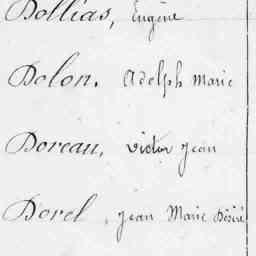 Dollias, Eugène
Dolon. Adolph Marie
Doreau, Victor Jean
Dorel, Jean Marie Désiré